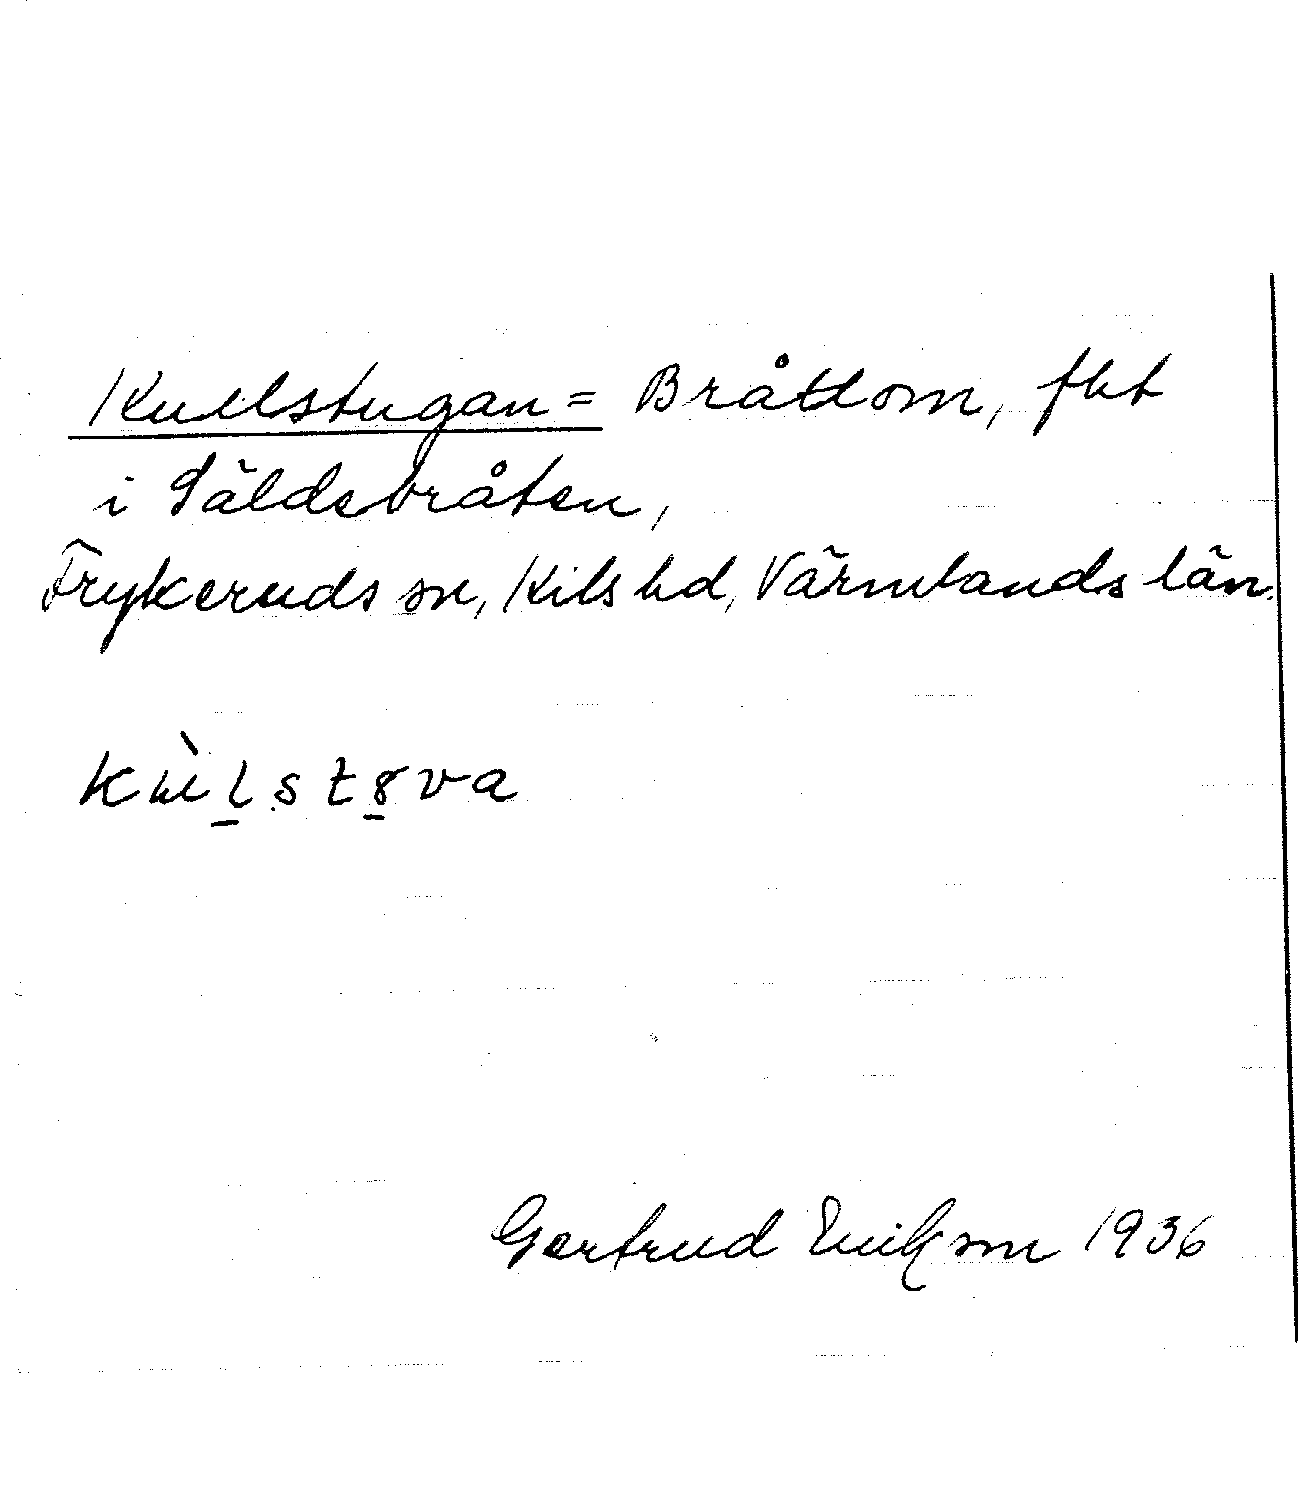 Kullstugan = Bråtlom, fht
i Säldebråten,
Frykeruds sn, Kils hd, Värmlands län.
Gertrud Erikson 1936